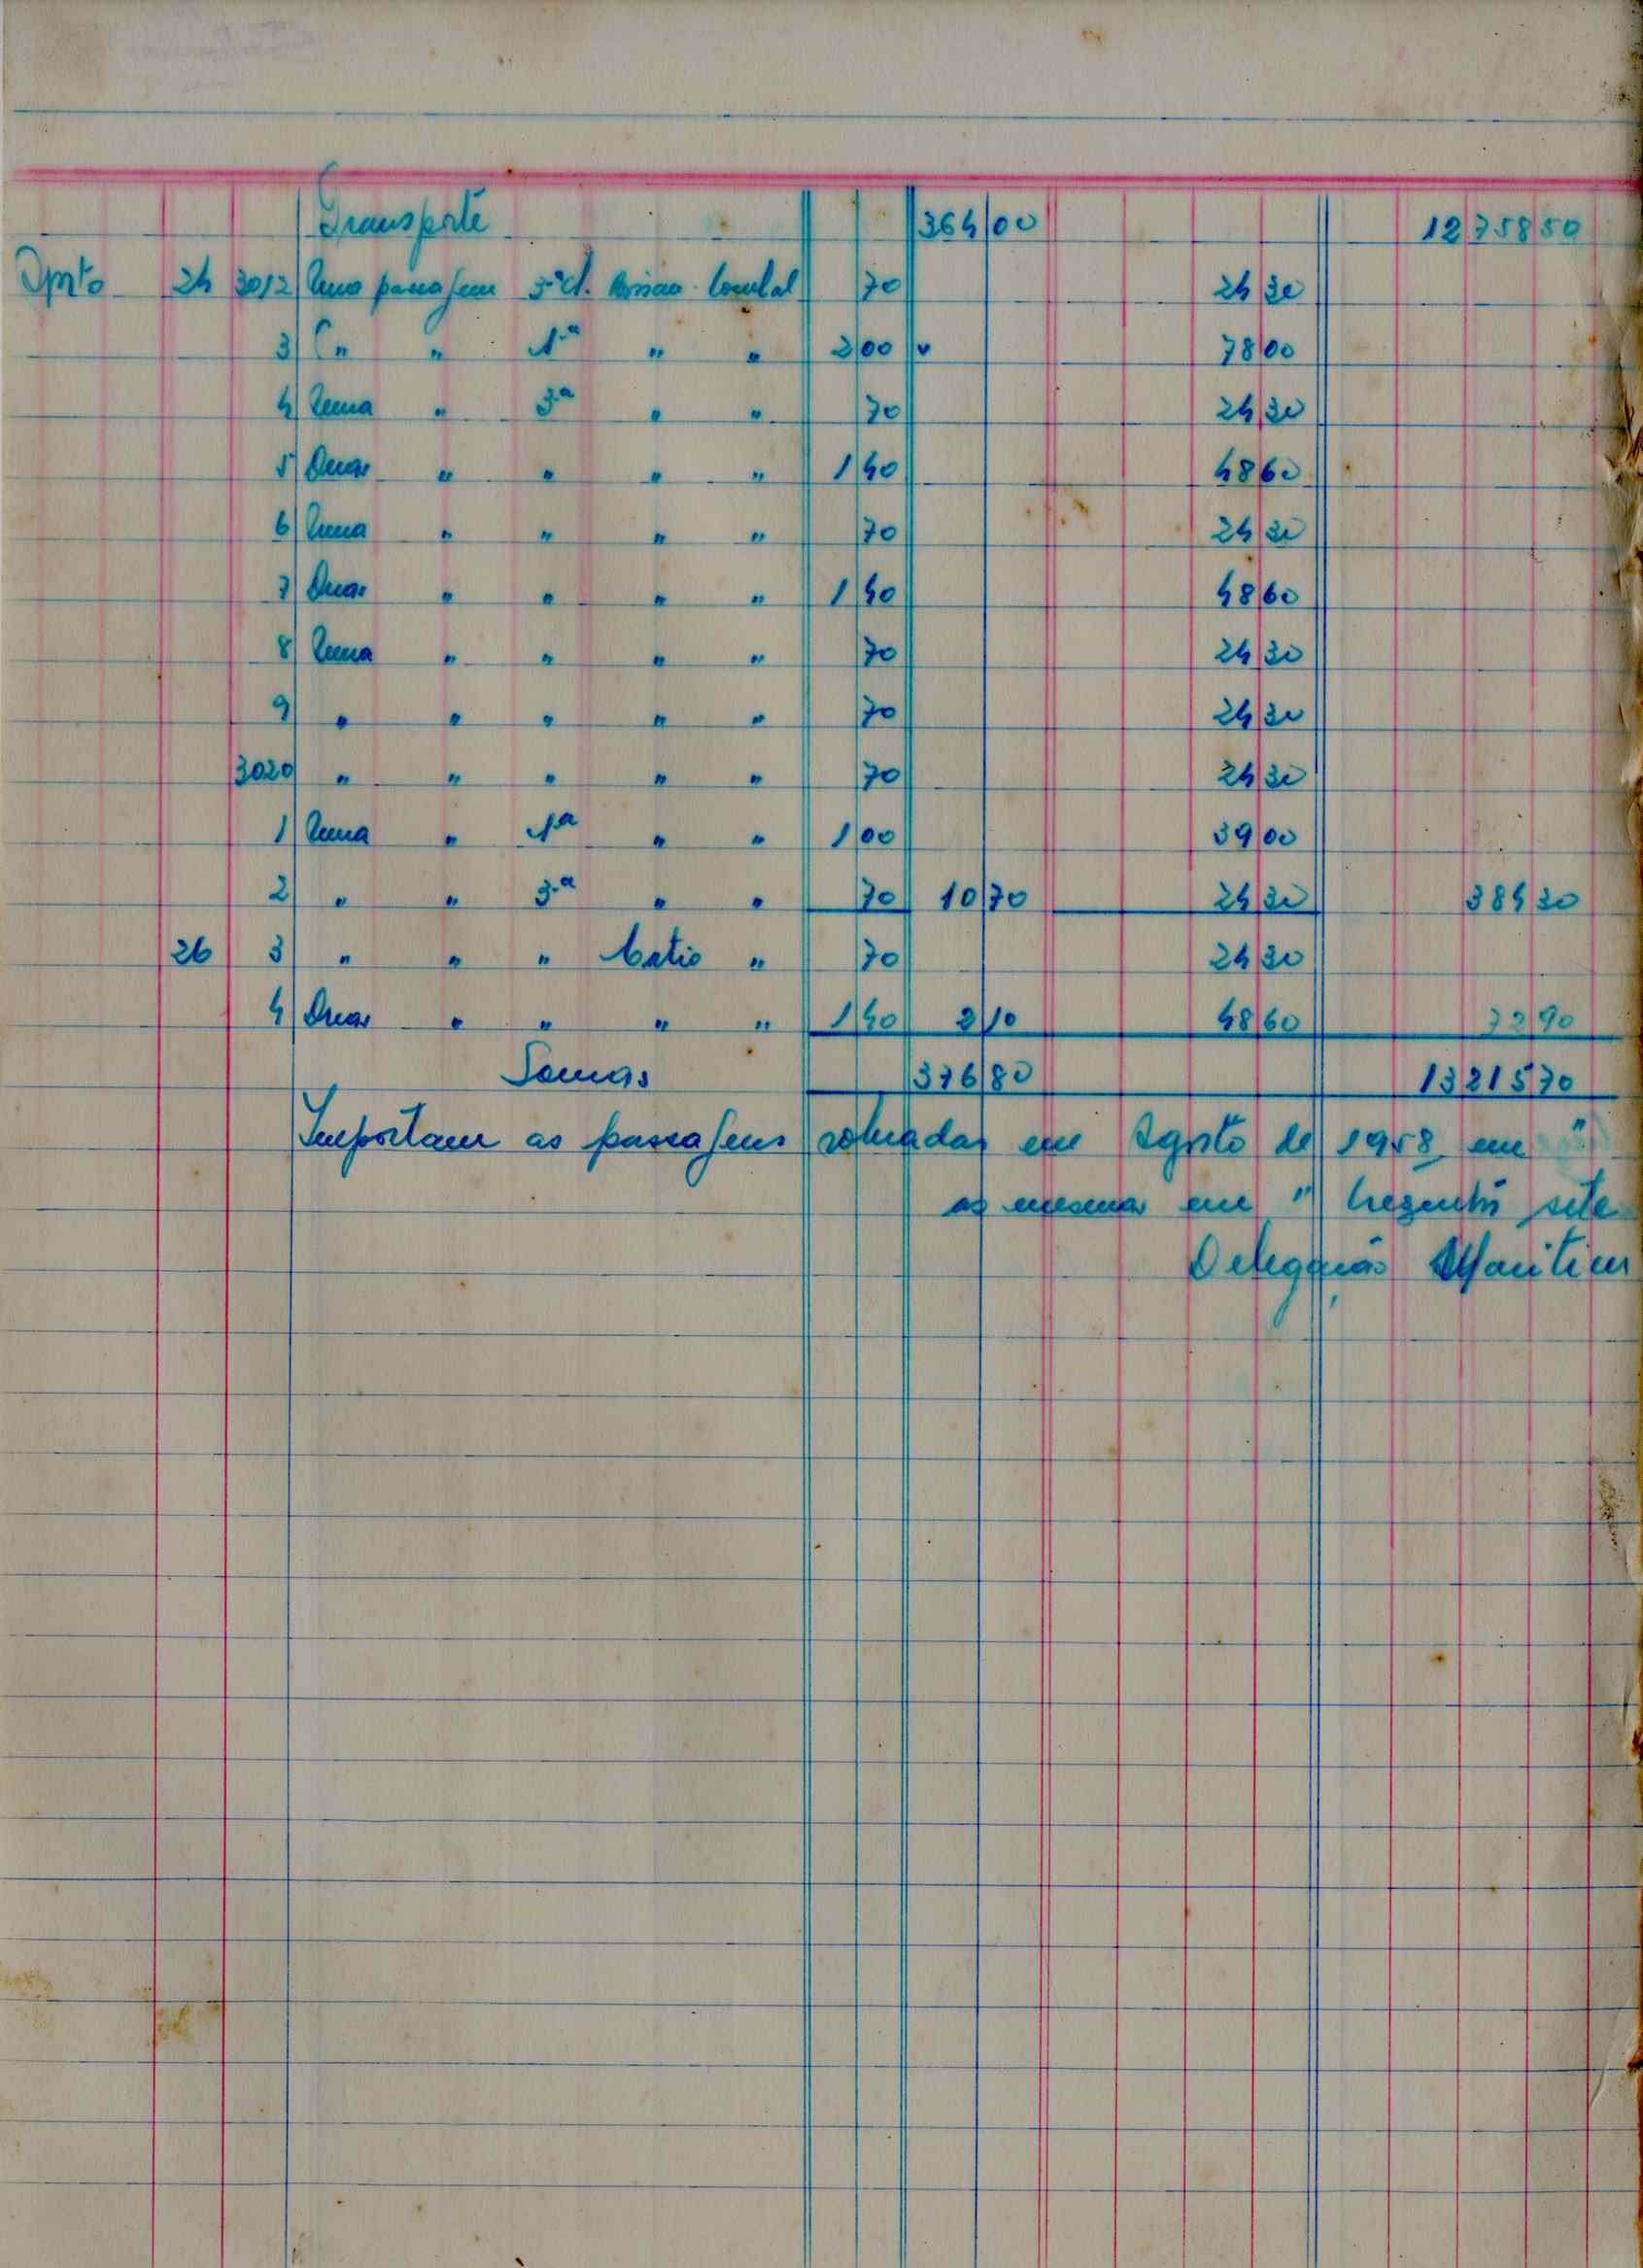 Transporte 364 00 12 758 50
Agosto 24 3012 Uma passagem 3ª cl. Bissau 70 24 30
3 " " 1ª " " 2 00 78 00
4 Uma " 3ª " " 70 24 30
5 Duas " " " " 1 40 48 60
6 Uma " " " " 70 24 30
7 Duas " " " " 1 40 48 60
8 Uma " " " " 70 24 30
9 " " " " " 70 24 30
3020 " " " " " 70 24 30
1 Uma " 1ª " " 1 00 39 00
2 " " 3ª " " 70 10 70 24 30 384 30
26 3 " " " Catió " 70 24 30
4 Duas " " " " 1 40 2 10 48 60 72 90
Somas 376 80 13 215 70
Importam as passagens em Agosto de 1958 em "
as mesmas em " trezentos sete
Delegação Marítim